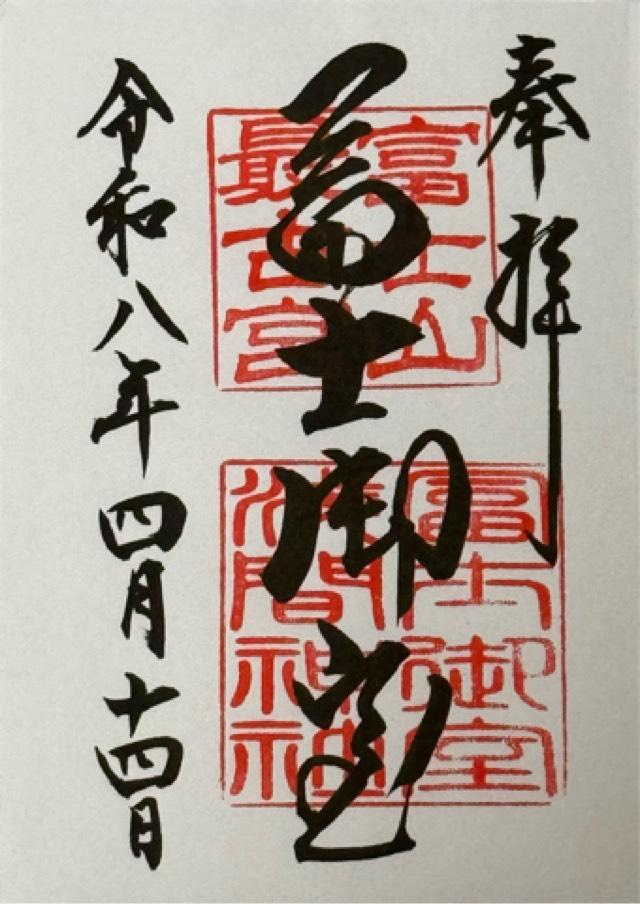 奉拝
富士山
最古宮
冨士御室
冨士御室
浅間神社
令和八年四月十四日